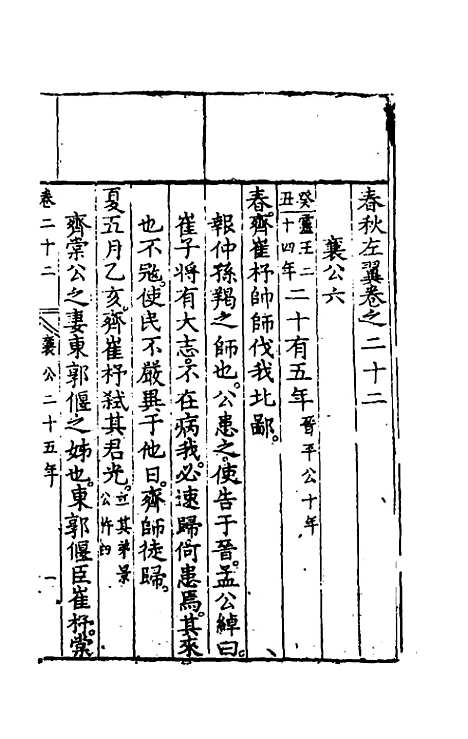 春秋左翼卷之二十二
襄公六
癸靈王二
丑十四年二十有五年晉平公十年
春。齊崔杼帥師伐我北鄙。
報仲孫羯之師也。公患之。使告于晉。孟公綽曰。
崔子將有大志。不在病我。必速歸。何患焉。其來
也不寇。使民不嚴。異于他日。齊師徒歸。
夏五月乙亥。齊崔杼弒其君光。立其弟景
公杵臼
齊棠公之妻東郭偃之姊也。東郭偃臣崔杼。棠
卷二十二 襄公二十五年 一